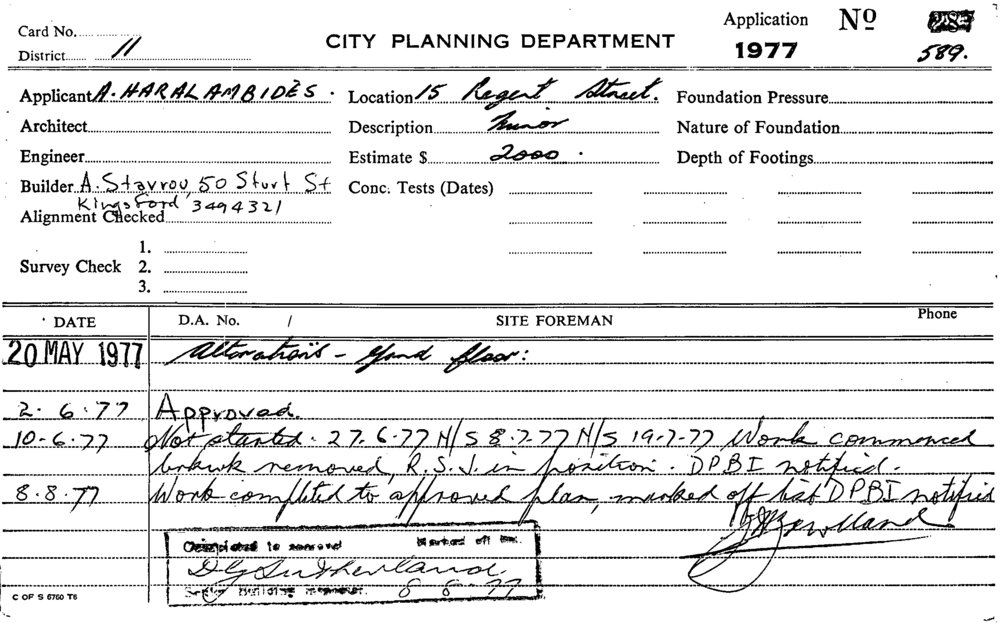 Card No.
District 11
CITY PLANNING DEPARTMENT
Application Nº
1977 589.
Applicant A. HARALAMBIDES.
Location 15 Regent Street.
Foundation Pressure
Architect
Description Minor
Nature of Foundation
Engineer
Estimate $ 2000.
Depth of Footings
Builder A. Stavrou, 50 Sturt St
Kingsford 3494321
Conc. Tests (Dates)
Alignment Checked
1.
Survey Check 2.
3.
DATE D.A. No. / SITE FOREMAN Phone
20 MAY 1977 Alterations - Grnd floor:
2.6.77 Approved.
10-6.77 Not started. 27.6-77 N/S 8-7-77 N/S 19-7-77 Work commenced
brkwk removed, R.S.J. in position. DPBI notified.
8.8.77 Work completed to approved plan, marked off list DPBI notified
Marked off
D G Sutherland.
Building
8 8 77
C OF S 6760 T6